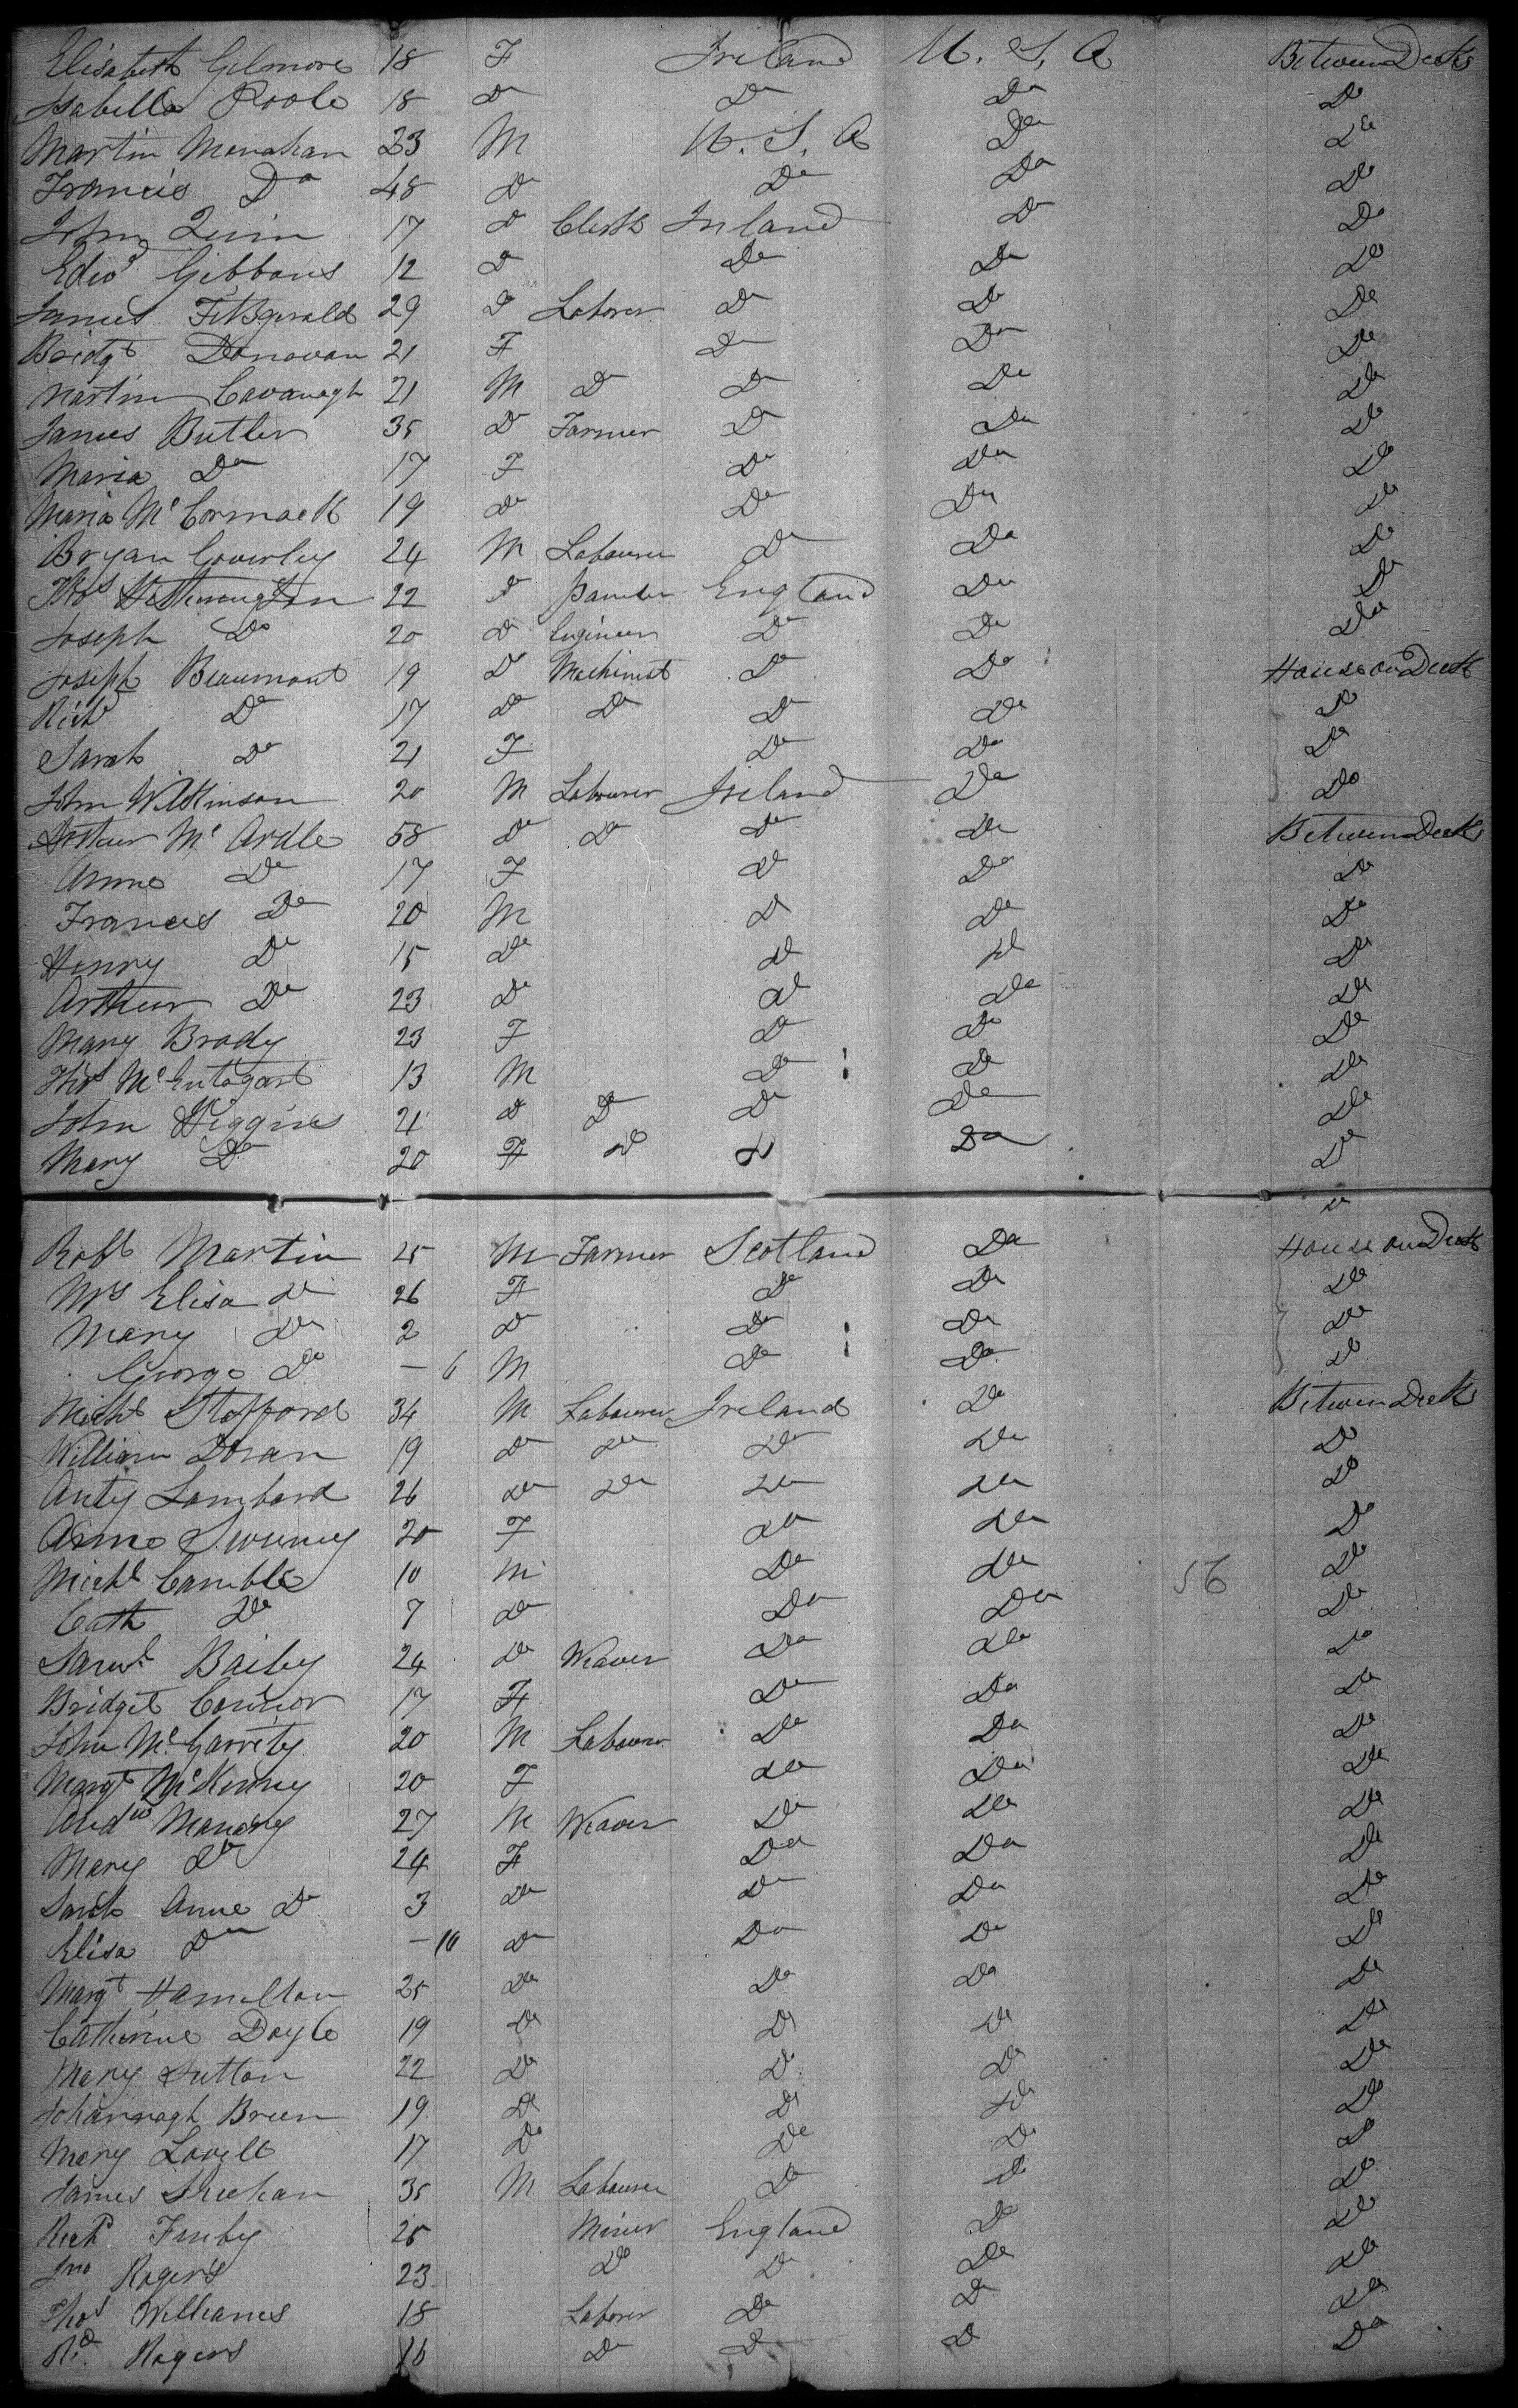 Elisabeth Gilmore 18 F Ireland U. S. A Between Decks
Isabella Poole 18 Do Do Do Do
Martin Monahan 23 M U. S. A Do Do
Francis Do 48 Do Do Do Do
John Quin 17 Do Clerk Ireland Do Do
Edwd Gibbons 12 Do Do Do Do
James FitzGerald 29 Do Laborer Do Do Do
Bridgt Donovan 21 F Do Do Do
Martin Cavanagh 21 M Do Do Do Do
James Butler 35 Do Farmer Do Do Do
Maria Do 17 F Do Do Do
Maria McCormack 19 Do Do Do Do
Bryan Coverley 24 M Labourer Do Do Do
Thos Hetherington 22 Do Painter England Do Do
Joseph Do 20 Do Engineer Do Do Do
Joseph Beaumont 19 Do Machinist Do Do House on Deck
Richd Do 17 Do Do Do Do Do
Sarah Do 21 F Do Do Do
John Wilkinson 20 M Labourer Ireland Do Do
Arthur McArdle 58 Do Do Do Do Between Decks
Anne Do 17 F Do Do Do
Francis Do 20 M Do Do Do
Henry Do 15 Do Do Do Do
Arthur Do 23 Do Do Do Do
Mary Brody 23 F Do Do Do
Thos McEntagart 13 M Do Do Do
John Higgins 21 Do Do Do Do Do
Mary Do 20 F Do Do Do Do
Do
Robt Martin 25 M Farmer Scotland Do House on Deck
Mrs Elisa Do 26 F Do Do Do
Mary Do 2 Do Do Do Do
George Do — 6 M Do Do Do
Michl Stafford 34 M Labourer Ireland Do Between Decks
William Doran 19 Do Do Do Do Do
Anty Lambard 26 Do Do Do Do Do
Anne Sweeney 20 F Do Do Do
Michl Camble 10 M Do Do 56 Do
Cath Do 7 Do Do Do Do
Saml Baily 24 Do Weaver Do Do Do
Bridget Connor 17 F Do Do Do
John McGarrety 20 M Labourer Do Do Do
Margt McKinney 20 F Do Do Do
Andw 27 M Weaver Do Do Do
Mary Do 24 F Do Do Do
Sarah Anne Do 3 Do Do Do Do
Elisa Do — 10 Do Do Do Do
Margt Hamilton 25 Do Do Do Do
Catherine Doyle 19 Do Do Do Do
Mary Sutton 22 Do Do Do Do
Johannagh Breen 19 Do Do Do Do
Mary Lovell 17 Do Do Do Do
James Sheehan 35 M Labourer Do Do Do
Richd 25 Miner England Do Do
Jno Rogers 23 Do Do Do Do
Thos Williams 18 Laborer Do Do Do
Rd Rogers 16 Do Do Do Do